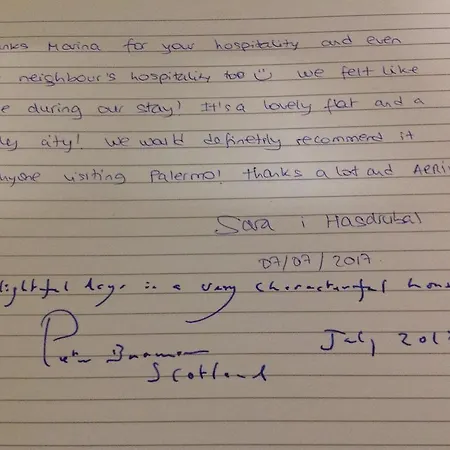 nks Marina for your hospitality and even
neighbour's hospitality too we felt like
e during our stay! It's a lovely flat and a
ely city! We would definetily recommend it
nyone visiting Palermo! thanks a lot and Aeriv
Sara i Hasdrubal
07/07/2017
lightful days in a very characterful hous
Peter
Scotland
July 201